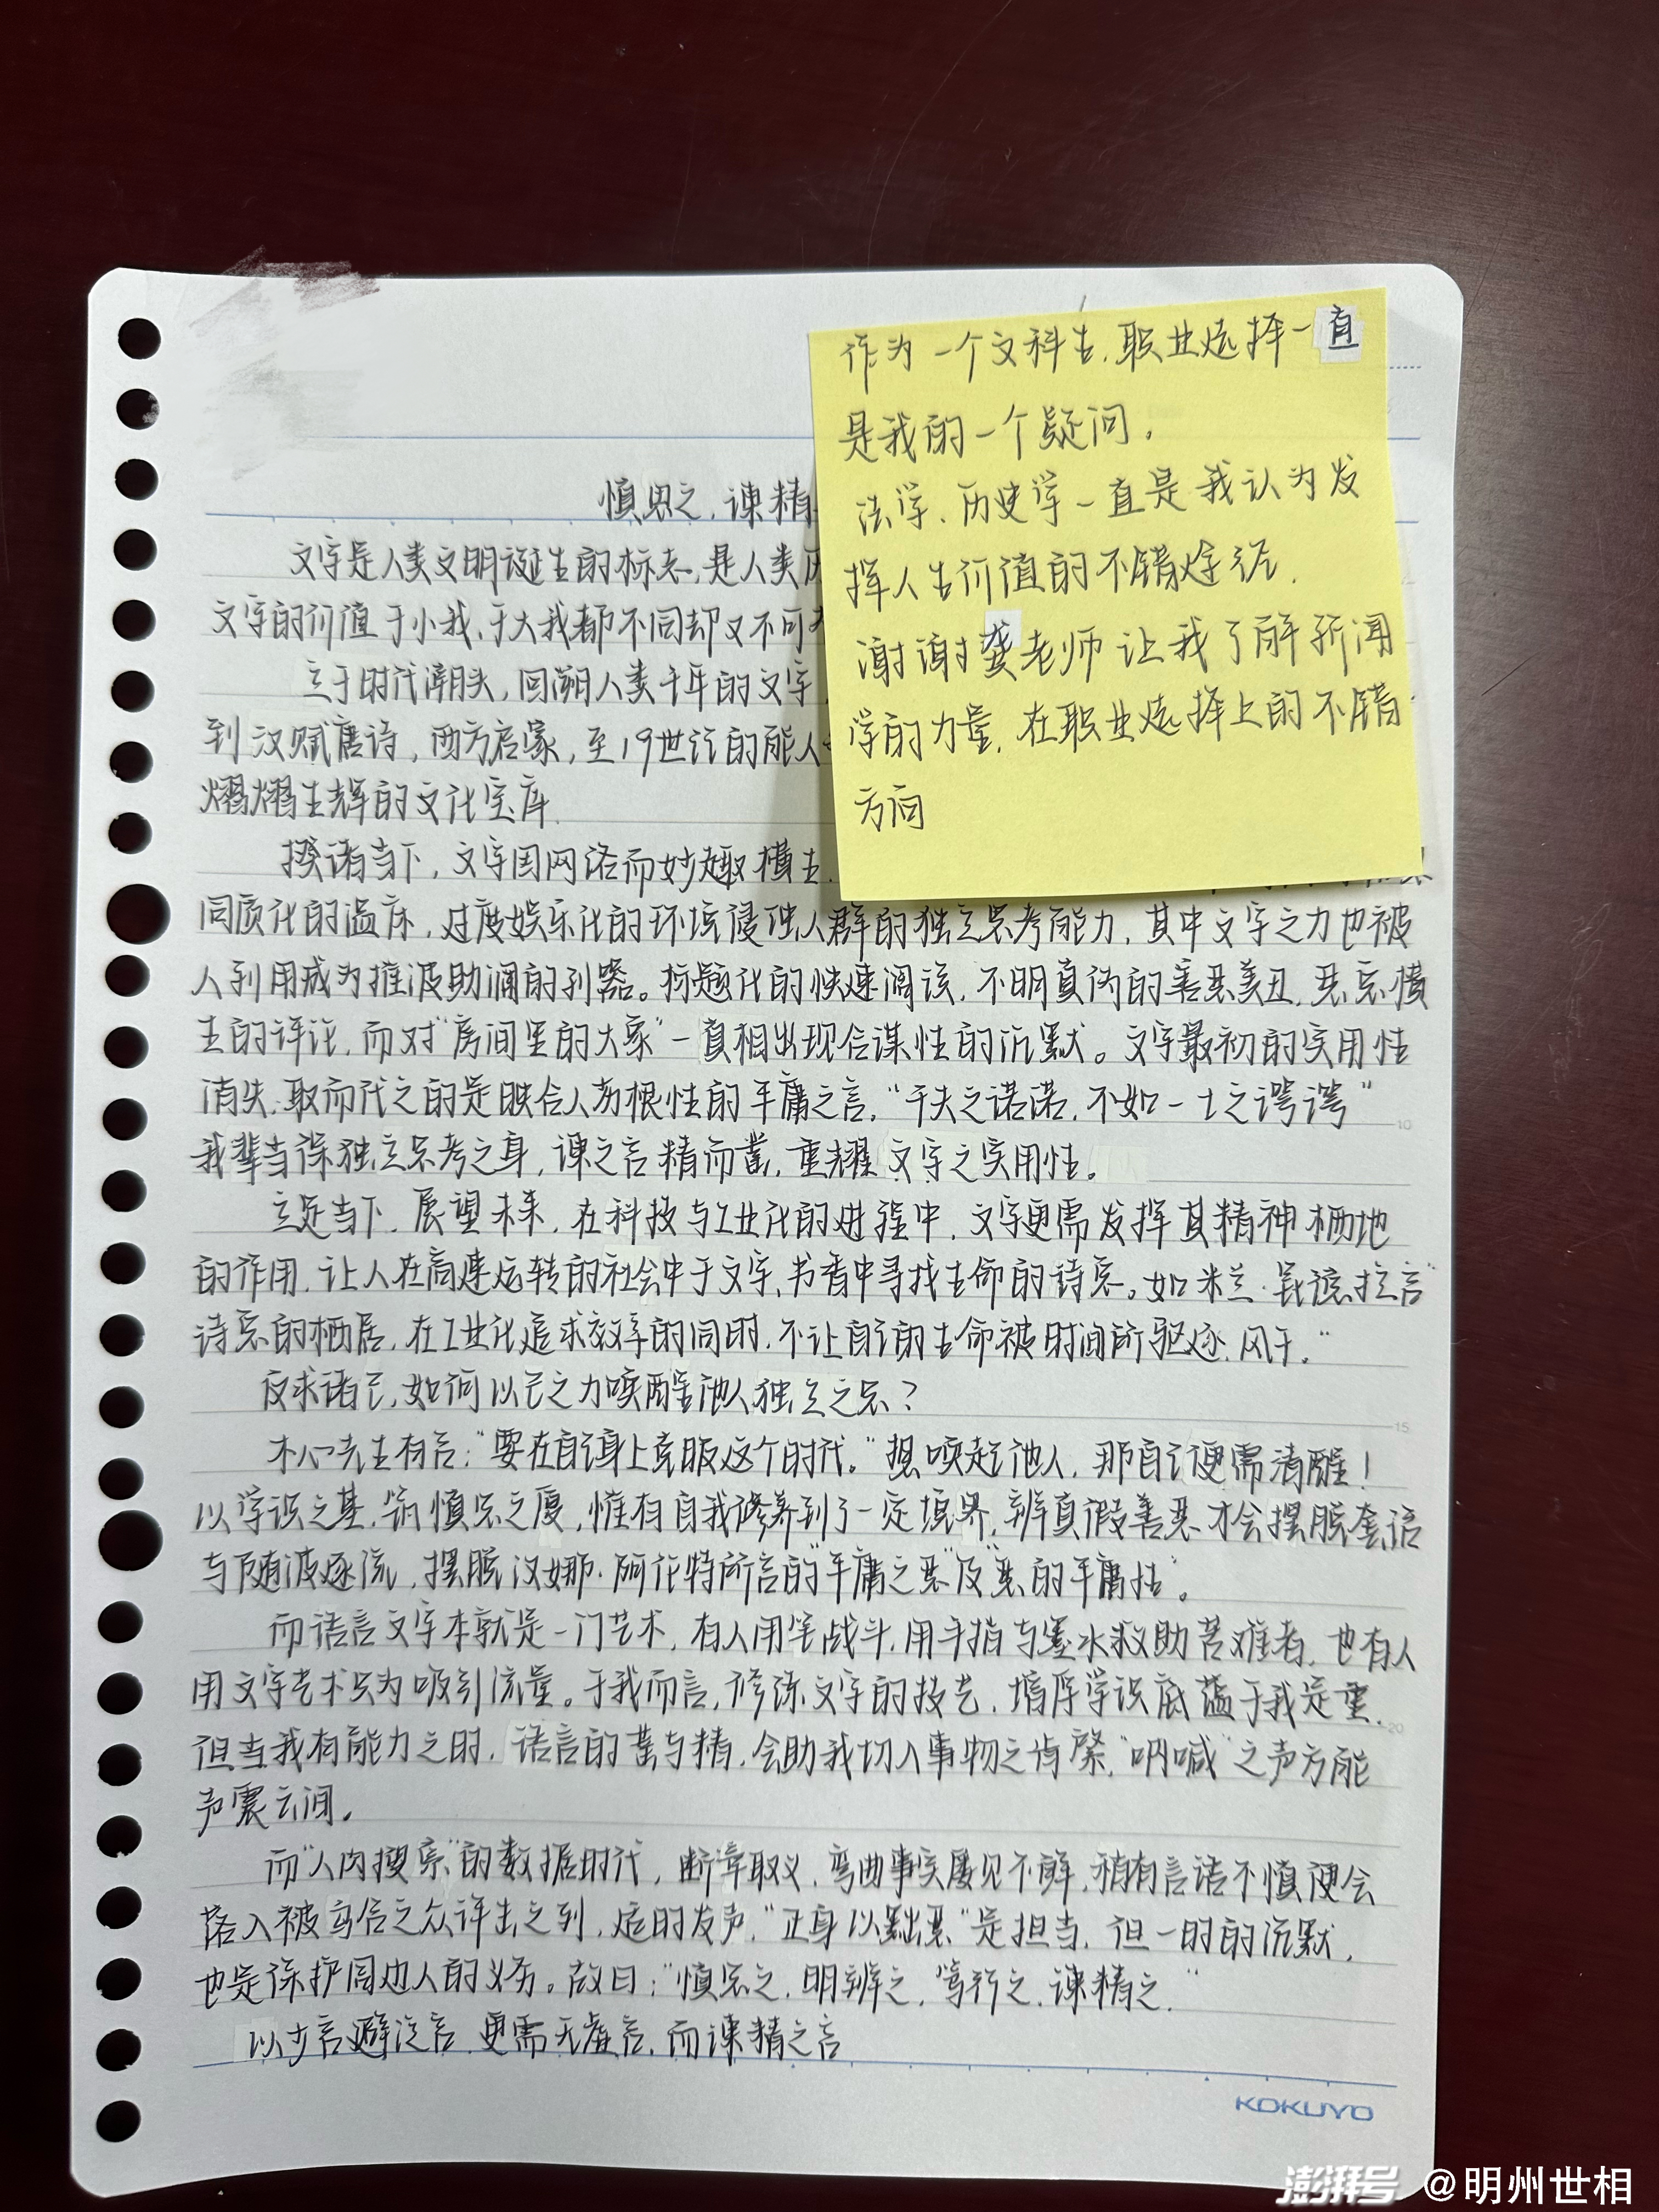 作为一个文科生,职业选择一直
是我的一个疑问.
法学、历史学一直是我认为发
挥人生价值的不错途径.
谢谢龚老师让我了解新闻
学的力量,在职业选择上的不错
方向
慎思之,谏精
文字是人类文明诞生的标志,是人类历
文字的价值于小我、于大我都不同却又不可
立于时代潮头,回溯人类千年的文字
到汉赋唐诗,西方启蒙,至19世纪的能人
熠熠生辉的文化宝库.
揆诸当下,文字因网络而妙趣横生.
同质化的温床,过度娱乐化的环境侵蚀人群的独立思考能力,其中文字之力也被
人利用成为推波助澜的利器。标题化的快速阅读,不明真伪的善恶美丑,恶意横
生的评论,而对“房间里的大象”—真相出现合谋性的沉默。文字最初的实用性
消失,取而代之的是映合人劣根性的平庸之言,“千夫之诺诺,不如一士之谔谔”
我辈当保独立思考之身,谏之言精而凿,重耀文字之实用性。
立足当下,展望未来,在科技与工业化的进程中,文字更需发挥其精神栖地
的作用,让人在高速运转的社会中于文字、书香中寻找生命的诗意。如米兰·昆德拉言“
诗意的栖居,在工业化追求效率的同时,不让自己的生命被时间所驱逐、风干。”
反求诸己,如何以己之力唤醒他人独立之思?
木心先生有言:“要在自己身上克服这个时代。”想唤起他人,那自己便需清醒!
以学识之基,筑慎思之厦,惟有自我修养到了一定境界,辨真假善恶才会摆脱套话
与随波逐流,摆脱汉娜·阿伦特所言的“平庸之恶”及“恶的平庸性”。
而语言文字本就是一门艺术,有人用笔战斗,用手指与墨水救助苦难者,也有人
用文字艺术只为吸引流量。于我而言,修炼文字的技艺,增厚学识底蕴于我是重.
但当我有能力之时,语言的凿与精,会助我切入事物之肯綮,“呐喊”之声方能
声震云间。
而“人肉搜索”的数据时代,断章取义、弯曲事实屡见不鲜,稍有言语不慎便会
落入被乌合之众评击之列,适时发声,“正身以黜恶”是担当,但一时的沉默,
也是保护周边人的义务。故曰:“慎思之,明辨之,笃行之,谏精之.”
以少言避泛言,更需无虚言,而谏精之言
KOKUYO
澎湃号 @明州世相